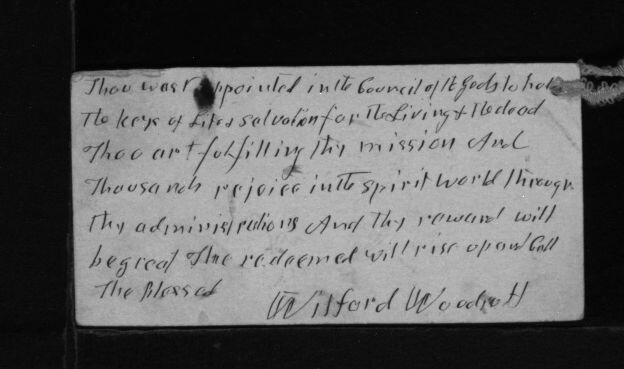 Thou wast appointed in the Council of the Gods to hold
The keys of Life & salvation for the Living & the dead
Thou art fulfilling thy mission And
Thousands rejoice in the spirit world through
thy administrations And thy reward will
be great The redeemed will rise up and Call
Thee Blessed
Wilford Woodruff